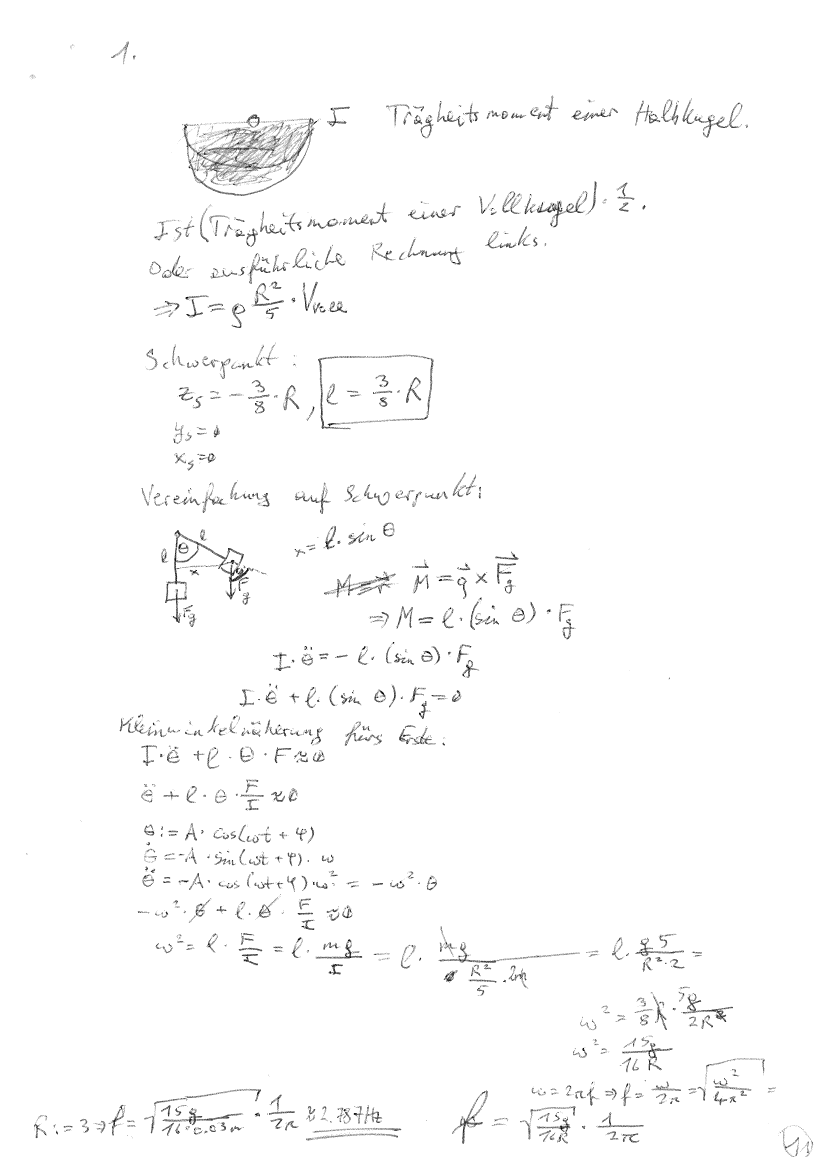 1.
I Trägheitsmoment einer Halbkugel.
Ist (Trägheitsmoment einer Vollkugel) · 1/2.
Oder ausführliche Rechnung links.
⇒ I = ρ R²/5 · V
Schwerpunkt:
z_s = - 3/8 · R, l = 3/8 · R
y_s = 0
x_s = 0
Vereinfachung auf Schwerpunkt:
x = l · sin θ
l θ l x F_g F_g
M⃗ = ρ⃗ × F⃗_g
⇒ M = l · (sin θ) · F_g
I · θ̈ = - l · (sin θ) · F_g
I · θ̈ + l · (sin θ) · F_g = 0
Kleinwinkelnäherung fürs Erste:
I · θ̈ + l · θ · F ≈ 0
θ̈ + l · θ · F/I ≈ 0
θ := A · cos(ωt + φ)
θ̇ = -A · sin(ωt + φ) · ω
θ̈ = -A · cos(ωt + φ) · ω² = - ω² · θ
-ω² · θ + l · θ · F/I ≈ 0
ω² = l · F/I = l · mg/I = l · mg/(R²/5 · 2m) = l · g5/(R²·2) =
ω² = 3/8 R · 5g/2R²
ω² = 15g/16R
ω = 2πf ⇒ f = ω/2π = √(ω²/4π²) =
f = √(15g/16R) · 1/2π
R := 3 ⇒ f = √(15g/16·0.03m) · 1/2π ≈ 2.787Hz